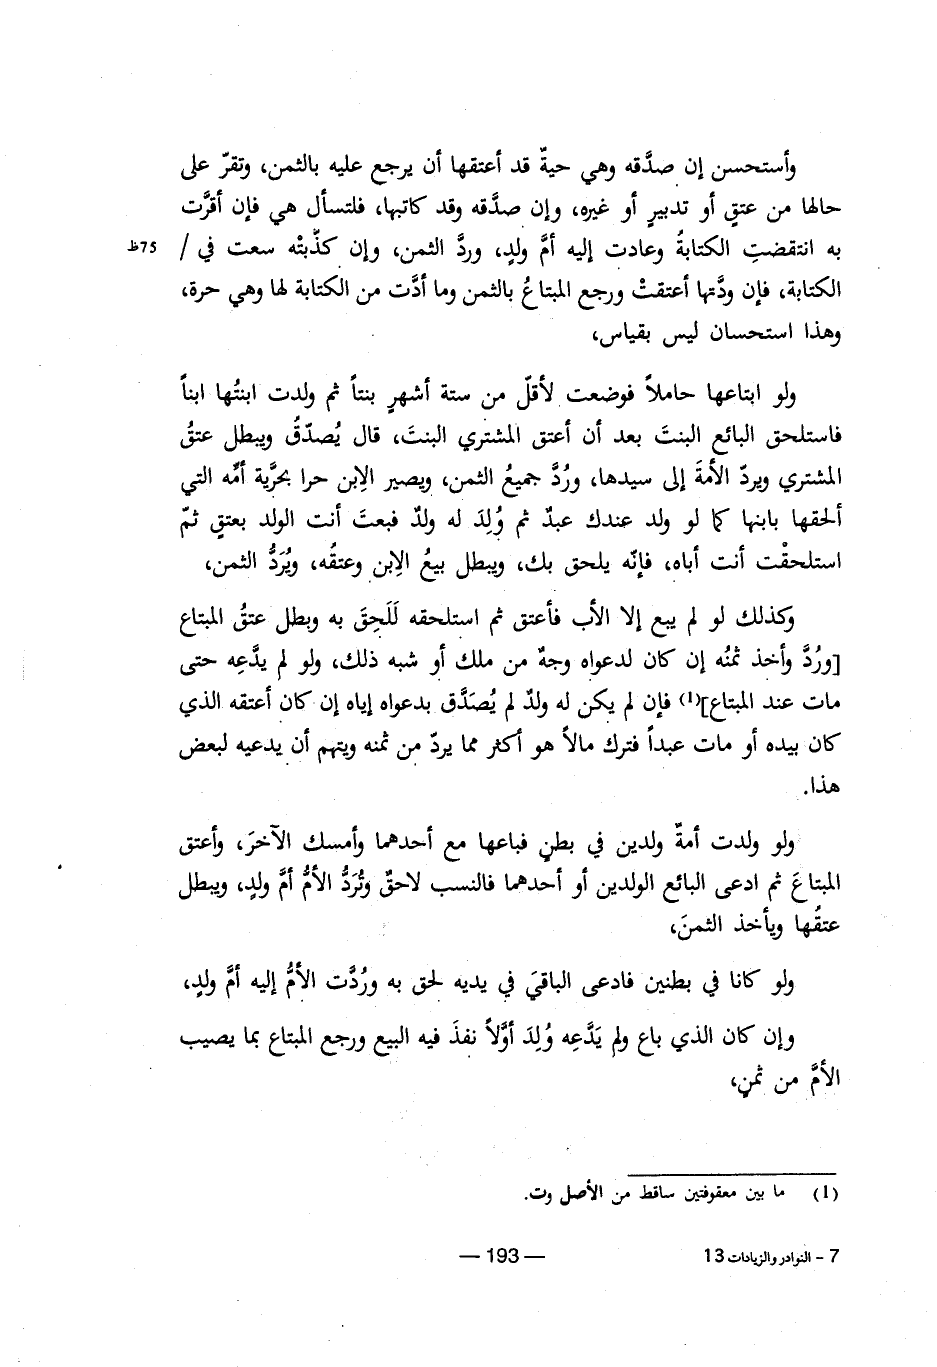 وأستحسن إن صدَّقه وهي حيةٌ قد أعتقها أن يرجع عليه بالثمن، وتقرّ على
حالها من عتقٍ أو تدبيرٍ أو غيره، وإن صدَّقه وقد كاتبها، فلتسأل هي فإن أقرَّت
به انتقضتِ الكتابةُ وعادت إليه أمَّ ولدٍ، وردَّ الثمن، وإن كذَّبتْه سعت في / 75ظ
الكتابة، فإن ودَّتها أعتقتْ ورجع المبتاعُ بالثمن وما أدَّت من الكتابة لها وهي حرة،
وهذا استحسان ليس بقياس،
ولو ابتاعها حاملاً فوضعت لأقلّ من ستة أشهرٍ بنتاً ثم ولدت ابنتُها ابناً
فاستلحق البائع البنتَ بعد أن أعتق المشتري البنتَ، قال يُصدّقُ ويبطل عتقُ
المشتري ويردّ الأمةَ إلى سيدها، ورُدَّ جميعُ الثمن، ويصير الِابن حرا بحرَّية أمِّه التي
ألحقها بابنها كما لو ولد عندك عبدٌ ثم وُلِدَ له ولدٌ فبعتَ أنت الولد بعتقٍ ثمّ
استلحقْت أنت أباه، فإنّه يلحق بك، ويبطل بيعُ الِابن وعتقُه، ويُرَدُّ الثمن،
وكذلك لو لم يبع إلا الأب فأعتق ثم استلحقه لَلَحِقَ به وبطل عتقُ المبتاع
[ورُدَّ وأخذ ثمنُه إن كان لدعواه وجهٌ من ملك أو شبه ذلك، ولو لم يدَّعِه حتى
مات عند المبتاع](1) فإن لم يكن له ولدٌ لم يُصَدَّق بدعواه إياه إن كان أعتقه الذي
كان بيده أو مات عبداً فترك مالاً هو أكثر مما يردّ من ثمنه ويتهم أن يدعيه لبعض
هذا.
ولو ولدت أمةٌ ولدين في بطنٍ فباعها مع أحدهما وأمسك الآخرَ، وأعتق
المبتاعَ ثم ادعى البائع الولدين أو أحدهما فالنسب لاحقٌ وتُرَدُّ الأمُّ أمَّ ولدٍ، ويبطل
عتقُها ويأخذ الثمنَ،
ولو كانا في بطنين فادعى الباقيَ في يديه لحق به ورُدَّت الأمُّ إليه أمَّ ولدٍ،
وإن كان الذي باع ولم يَدَّعِه وُلِدَ أوَّلاً نفذَ فيه البيع ورجع المبتاع بما يصيب
الأمَّ من ثمنٍ،
(1) ما بين معقوفتين ساقط من الأصل وت.
7 - النوادر والزيادات 13
— 193 —